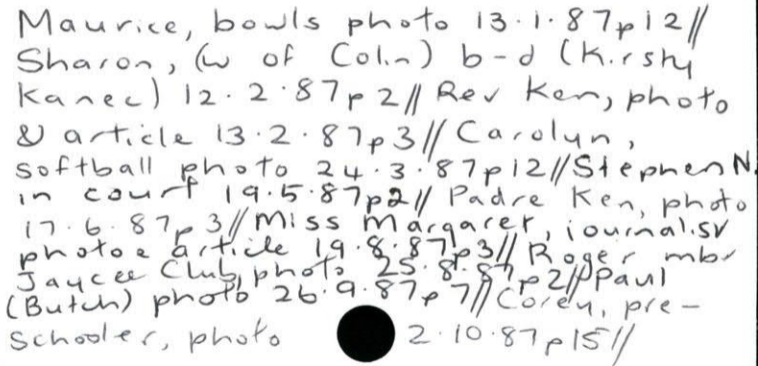 Maurice, bowls photo 13.1.87p12//
Sharon, (w of Colin) b-d (Kirsty
Kanec) 12.2.87p2// Rev Ken, photo
& article 13.2.87p3// Carolyn,
softball photo 24.3.87p12//Stephen N.
in court 19.5.87p2// Padre Ken, photo
17.6.87p3//Miss Margaret, journalist
photo & article 19.8.87p3// Roger mbr
Jaycee Club, photo 25.8.87p2//Paul
(Butch) photo 26.9.87p7//Corey, pre-
schooler, photo 2.10.87p15//